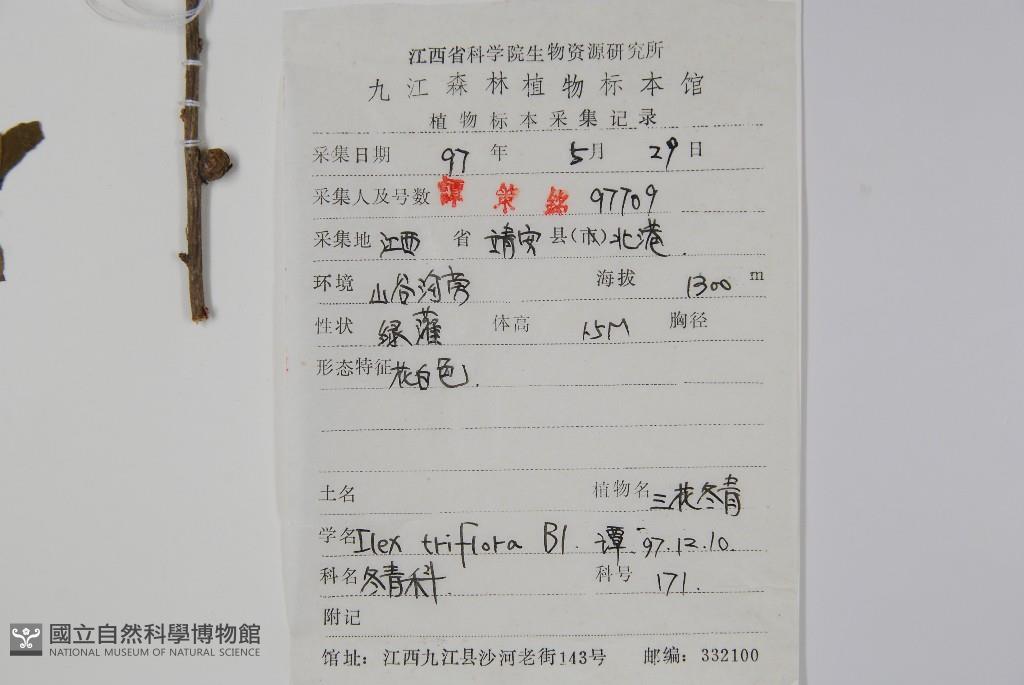 江西省科学院生物资源研究所
九江森林植物标本馆
植物标本采集记录
采集日期 97 年 5月 29 日
采集人及号数 譚策銘 97709
采集地 江西 省 靖安 县(市) 北港.
环境 山谷河旁 海拔 1300 m
性状 绿灌 体高 1.5M 胸径
形态特征 花白色.
土名 植物名 三花冬青
学名 Ilex triflora Bl. 谭 97.12.10.
科名 冬青科. 科号 171.
附记
馆址：江西九江县沙河老街143号 邮编：332100
國立自然科學博物館
NATIONAL MUSEUM OF NATURAL SCIENCE